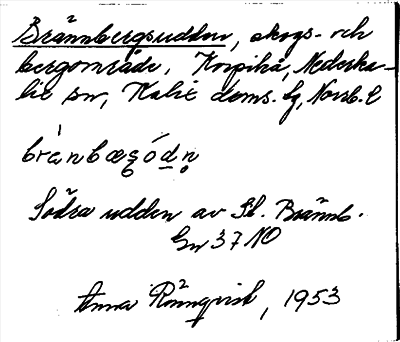 Brännbergsudden, skogs- och
bergområde, Korpikå, Nederka-
lix sn, Kalix doms. lg, Norrb. l
brànbæꞩódn̥
Södra udden av St. Brännb.
Gw 37 NO
Anna Rönnqvist, 1953